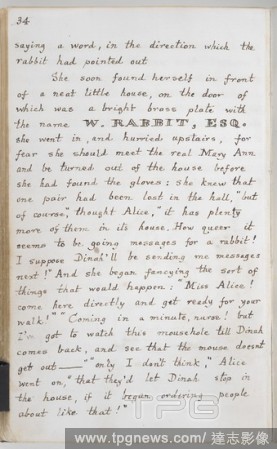 34
saying a word, in the direction which the
rabbit had pointed out
She soon found herself in front
of a neat little house, on the door of
which was a bright brass plate with
the name W. RABBIT, ESQ.
she went in, and hurried upstairs, for
fear she should meet the real Mary Ann
and be turned out of the house before
she had found the gloves: she knew that
one pair had been lost in the hall, "but
of course," thought Alice, "it has plenty
more of them in its house. How queer it
seems to be going messages for a rabbit!
I suppose Dinah'll be sending me messages
next!" And she began fancying the sort of
things that would happen: "Miss Alice!
come here directly and get ready for your
walk!" "Coming in a minute, nurse! but
I've got to watch this mousehole till Dinah
comes back, and see that the mouse doesn't
get out—" "only I don't think," Alice
went on, "that they'd let Dinah stop in
the house, if it began ordering people
about like that!"
TPG
www.tpgnews.com/ 達志影像